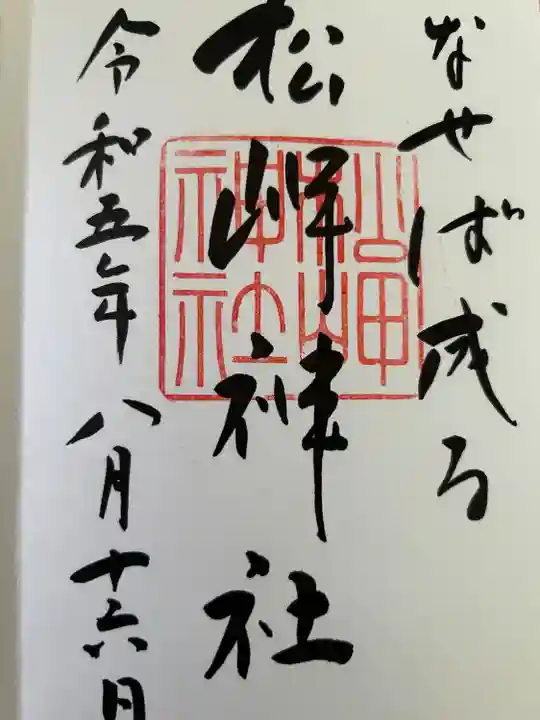 なせば成る
松岬神社
令和五年八月十六日